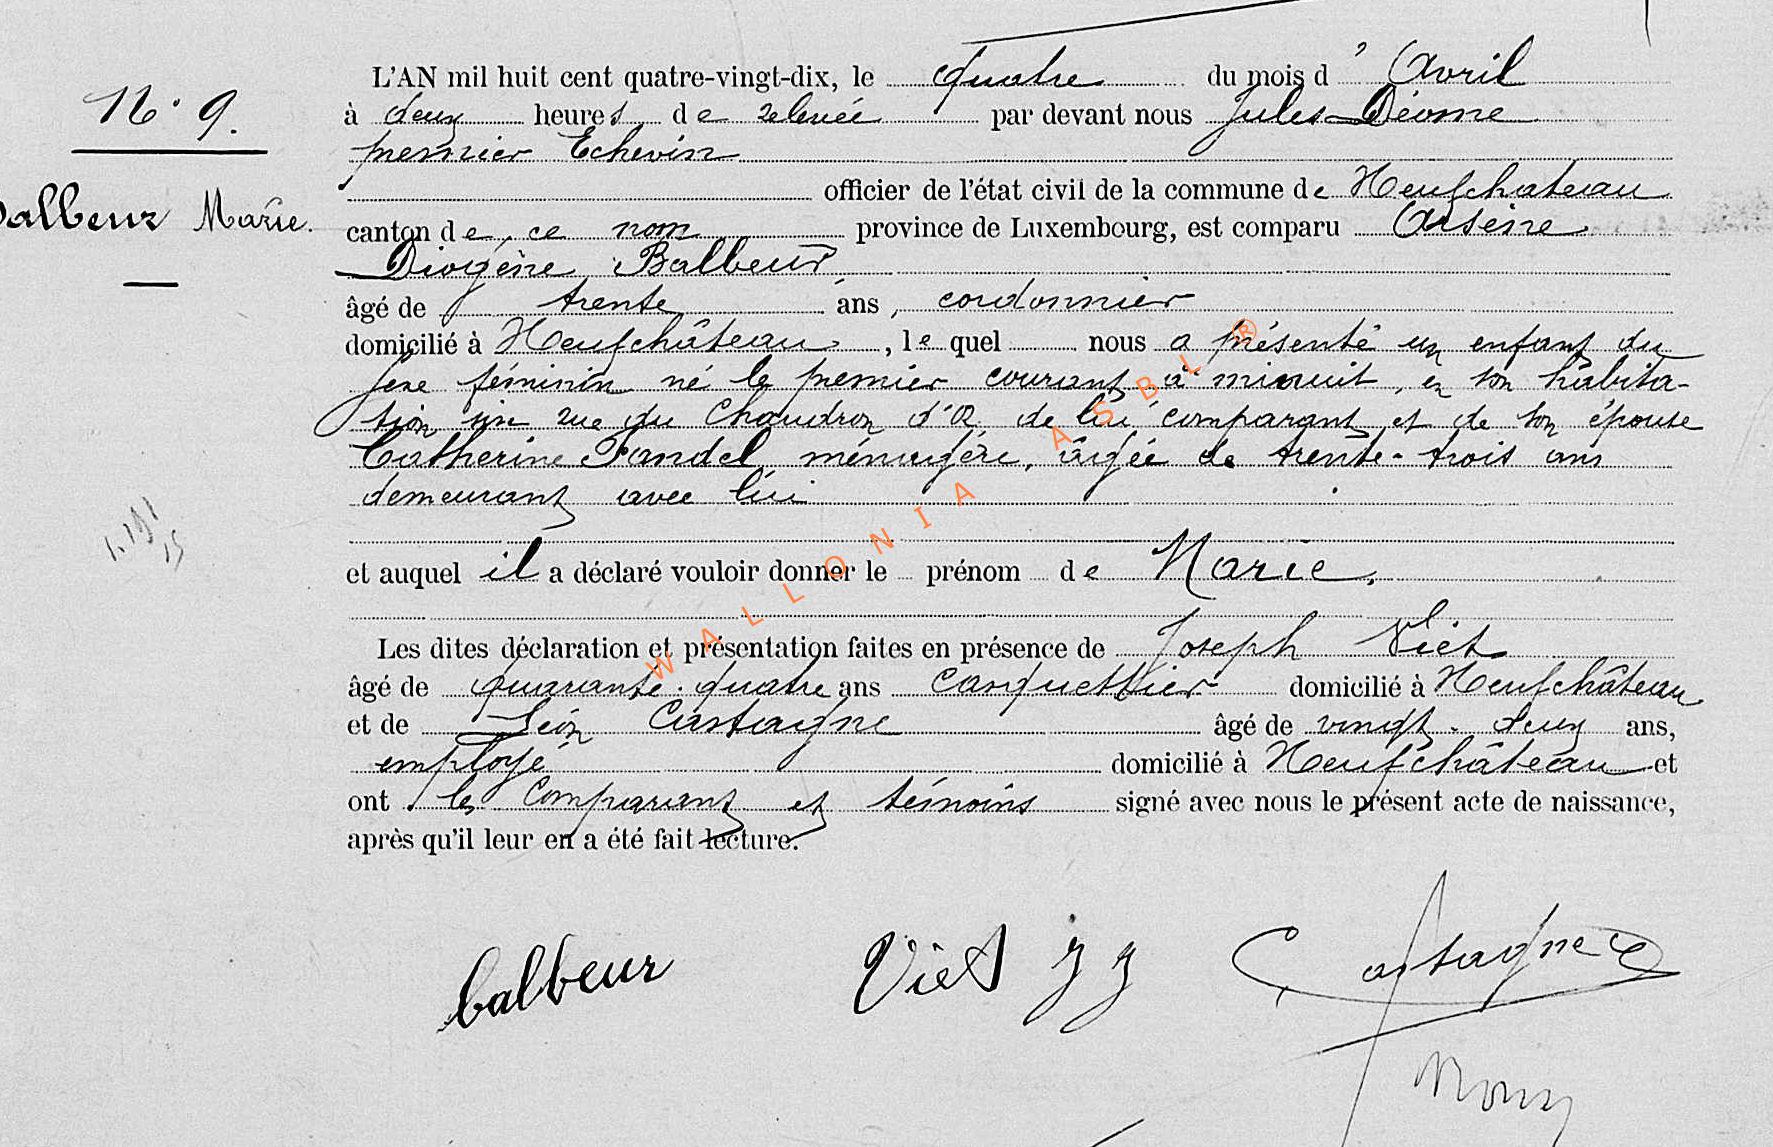 L'AN mil huit cent quatre-vingt-dix, le quatre du mois d' Avril
N° 9.
à deux heures de relevée par devant nous Jules Déome
premier Echevin
officier de l'état civil de la commune de Neufchateau
Balbeur Marie.
canton de ce nom province de Luxembourg, est comparu Arsène
Diogène Balbeur
âgé de trente ans, cordonnier
domicilié à Neufchâteau, le quel nous a présenté un enfant du
sexe féminin né le premier courant à minuit, en son habita-
tion sise rue du Chaudron d'Or, de lui comparant et de son épouse
Catherine Fandel, ménagère, âgée de trente-trois ans
demeurant avec lui
et auquel il a déclaré vouloir donner le prénom de Marie.
Les dites déclaration et présentation faites en présence de Joseph Viet
âgé de quarante-quatre ans casquettier domicilié à Neufchâteau
et de Léon Castagne âgé de vingt-deux ans,
employé domicilié à Neufchâteau et
ont les comparant et témoins signé avec nous le présent acte de naissance,
après qu'il leur en a été fait lecture.
balbeur Viet JJ Castagne
WALLONIA ASBL ®